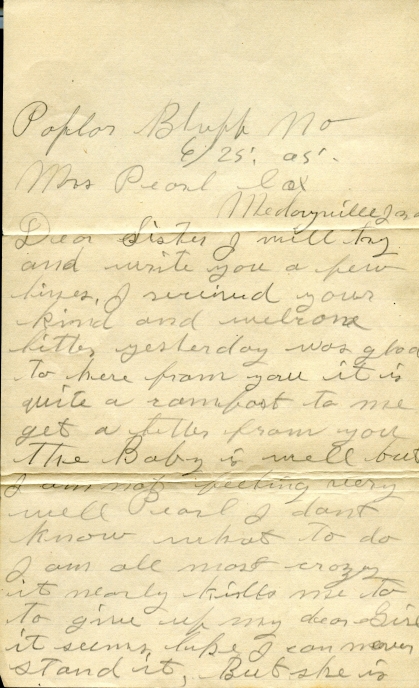 Poplar Bluff Mo
6/25'. 05'.
Mrs Pearl Cox
Medaryville Ind
Dear Sister I will try
and write you a few
lines. I recieved your
kind and welcome
letter yesterday was glad
to here from you it is
quite a comfort to me
get a letter from you
The Baby is well but
I am not feeling very
well Pearl I dont
know what to do
I am all most crazy
it nearly kills me to
to give up my dear Girl
it seems like I can never
stand it, But she is